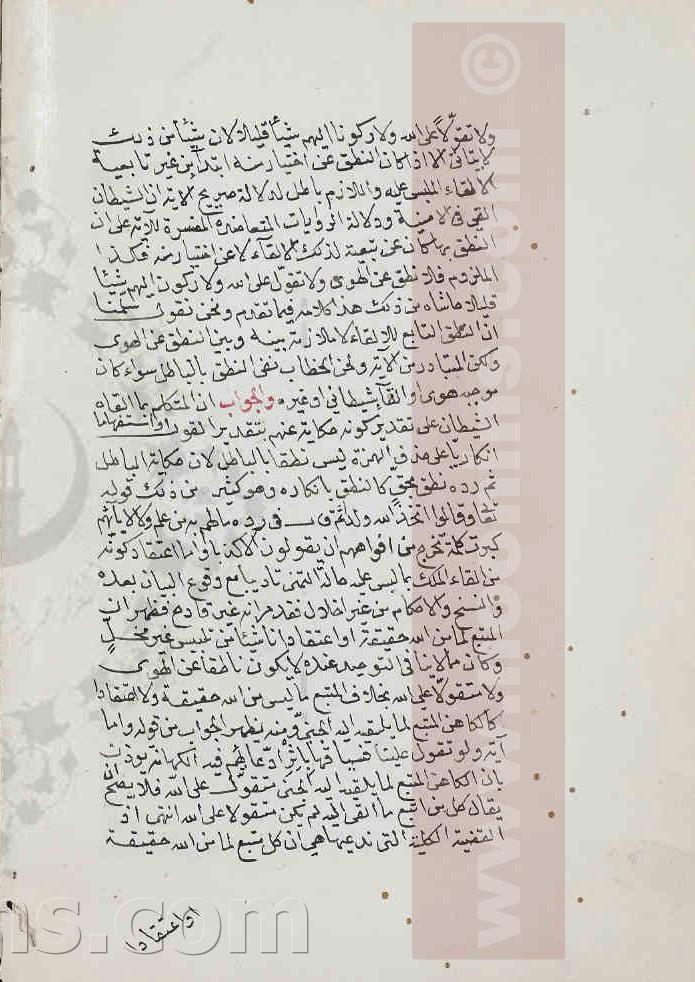 ولا تقوّلاً على الله ولا ركونا اليهم شيئاً قليلا لان شيئاً من ذلك
لا يتاتى الا اذا كان النطق عن اختيار منه ابتداء من غير تابعية
لالقاء الملبس عليه واللازم باطل لدلالة صريح الاية ان الشيطان
القى في امنيته ودلالة الروايات المتعاضدة المفسرة للآية على ان
النطق بها كان عن تبعية لذلك الالقاء لا عن اختيار منه فكذا
الملزوم فلا نطق عن الهوى ولا تقوّل على الله ولا ركون اليهم شيئا
قليلا حاشاه من ذلك هذا كلامه فيما تقدم ونحن نقول سلمنا
ان النطق التابع للالقاء لا ملازمة بينه وبين النطق عن الهوى
ولكن المتبادر من الآية ولحن الخطاب نفي النطق بالباطل سواء كان
موجبه هوى او القاء شيطاني او غيره والجواب ان المتكلم بما القاه
الشيطان على تقدير كونه حكاية عنهم بتقدير القول او استفهاما
انكاريا على حذف الهمزة ليس نطقا بالباطل لان حكاية الباطل
ثم رده نطق بحق كالنطق بانكاره وهو كثير من ذلك قوله
تعالى وقالوا اتخذ الله ولدا ثم قال في رده ما لهم به من علم ولا لابائهم
كبرت كلمة تخرج من افواههم ان يقولون الا كذبا واما اعتقاد كونه
من القاء الملك بما ليس عليه حالة التمني تاديبا مع وقوع البيان بعده
والنسخ والاحكام من غير اخلال فقد مر انه غير قادح فظهر ان
المتبع لما من الله حقيقة او اعتقادا ناشيئا من تلبيس غير مخلّ
وكان ملاينا في التوحيد عنده لا يكون ناطقا عن الهوى
ولا متقولا على الله بخلاف المتبع ما ليس من الله حقيقة ولا اعتقادا
كالكاهن المتبع لما يلقيه اليه الجني ومنه يظهر الجواب من قوله واما
آية ولو تقول علينا فنيبا قها بِاثْرِ ادعائهم فيه الكهانة يوذن
بان الكاهن المتبع لما يلقيه اليه الجني متقوّل على الله فلا يصح ان
يقال كل من اتبع ما القي اليه لم يكن متقولا على الله انتهى اذ
القضية الكلية التي ندعيها هي ان كل متبع لما من الله حقيقة
او اعتقادا